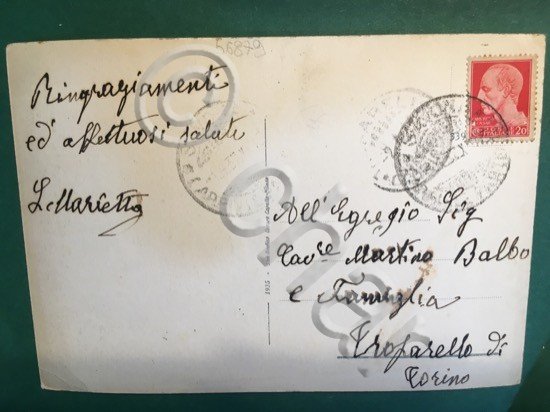 56879
Ringraziamenti
ed' affettuosi saluti
L Marietta
All'Egregio Sig
Cav.re Martino Balbo
e Famiglia
Trofarello di
Torino
1935
20